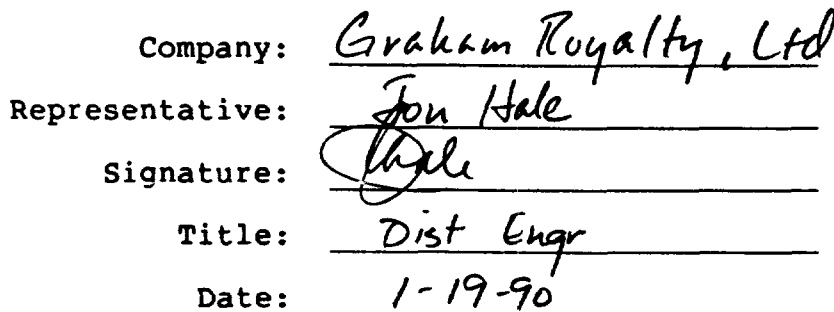 Company: Graham Royalty, Ltd
Representative: Jon Hale
Signature: JHale
Title: Dist Engr
Date: 1-19-90